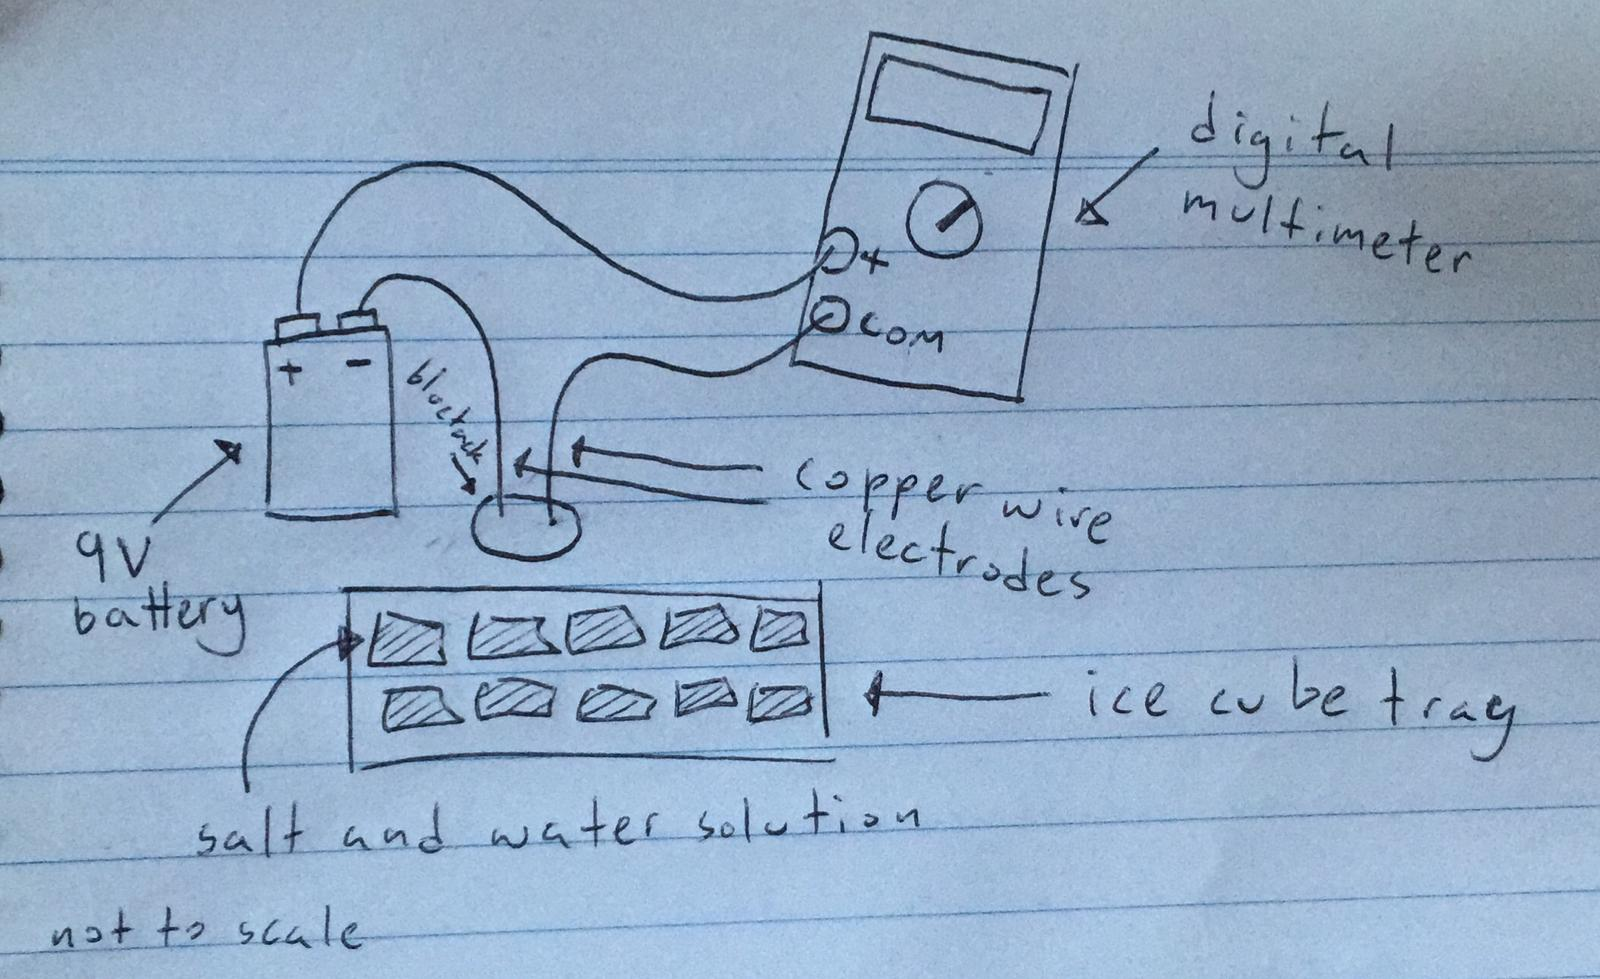 digital
multimeter
+
COM
+ -
blutack
copper wire
electrodes
9V
battery
ice cube tray
salt and water solution
not to scale